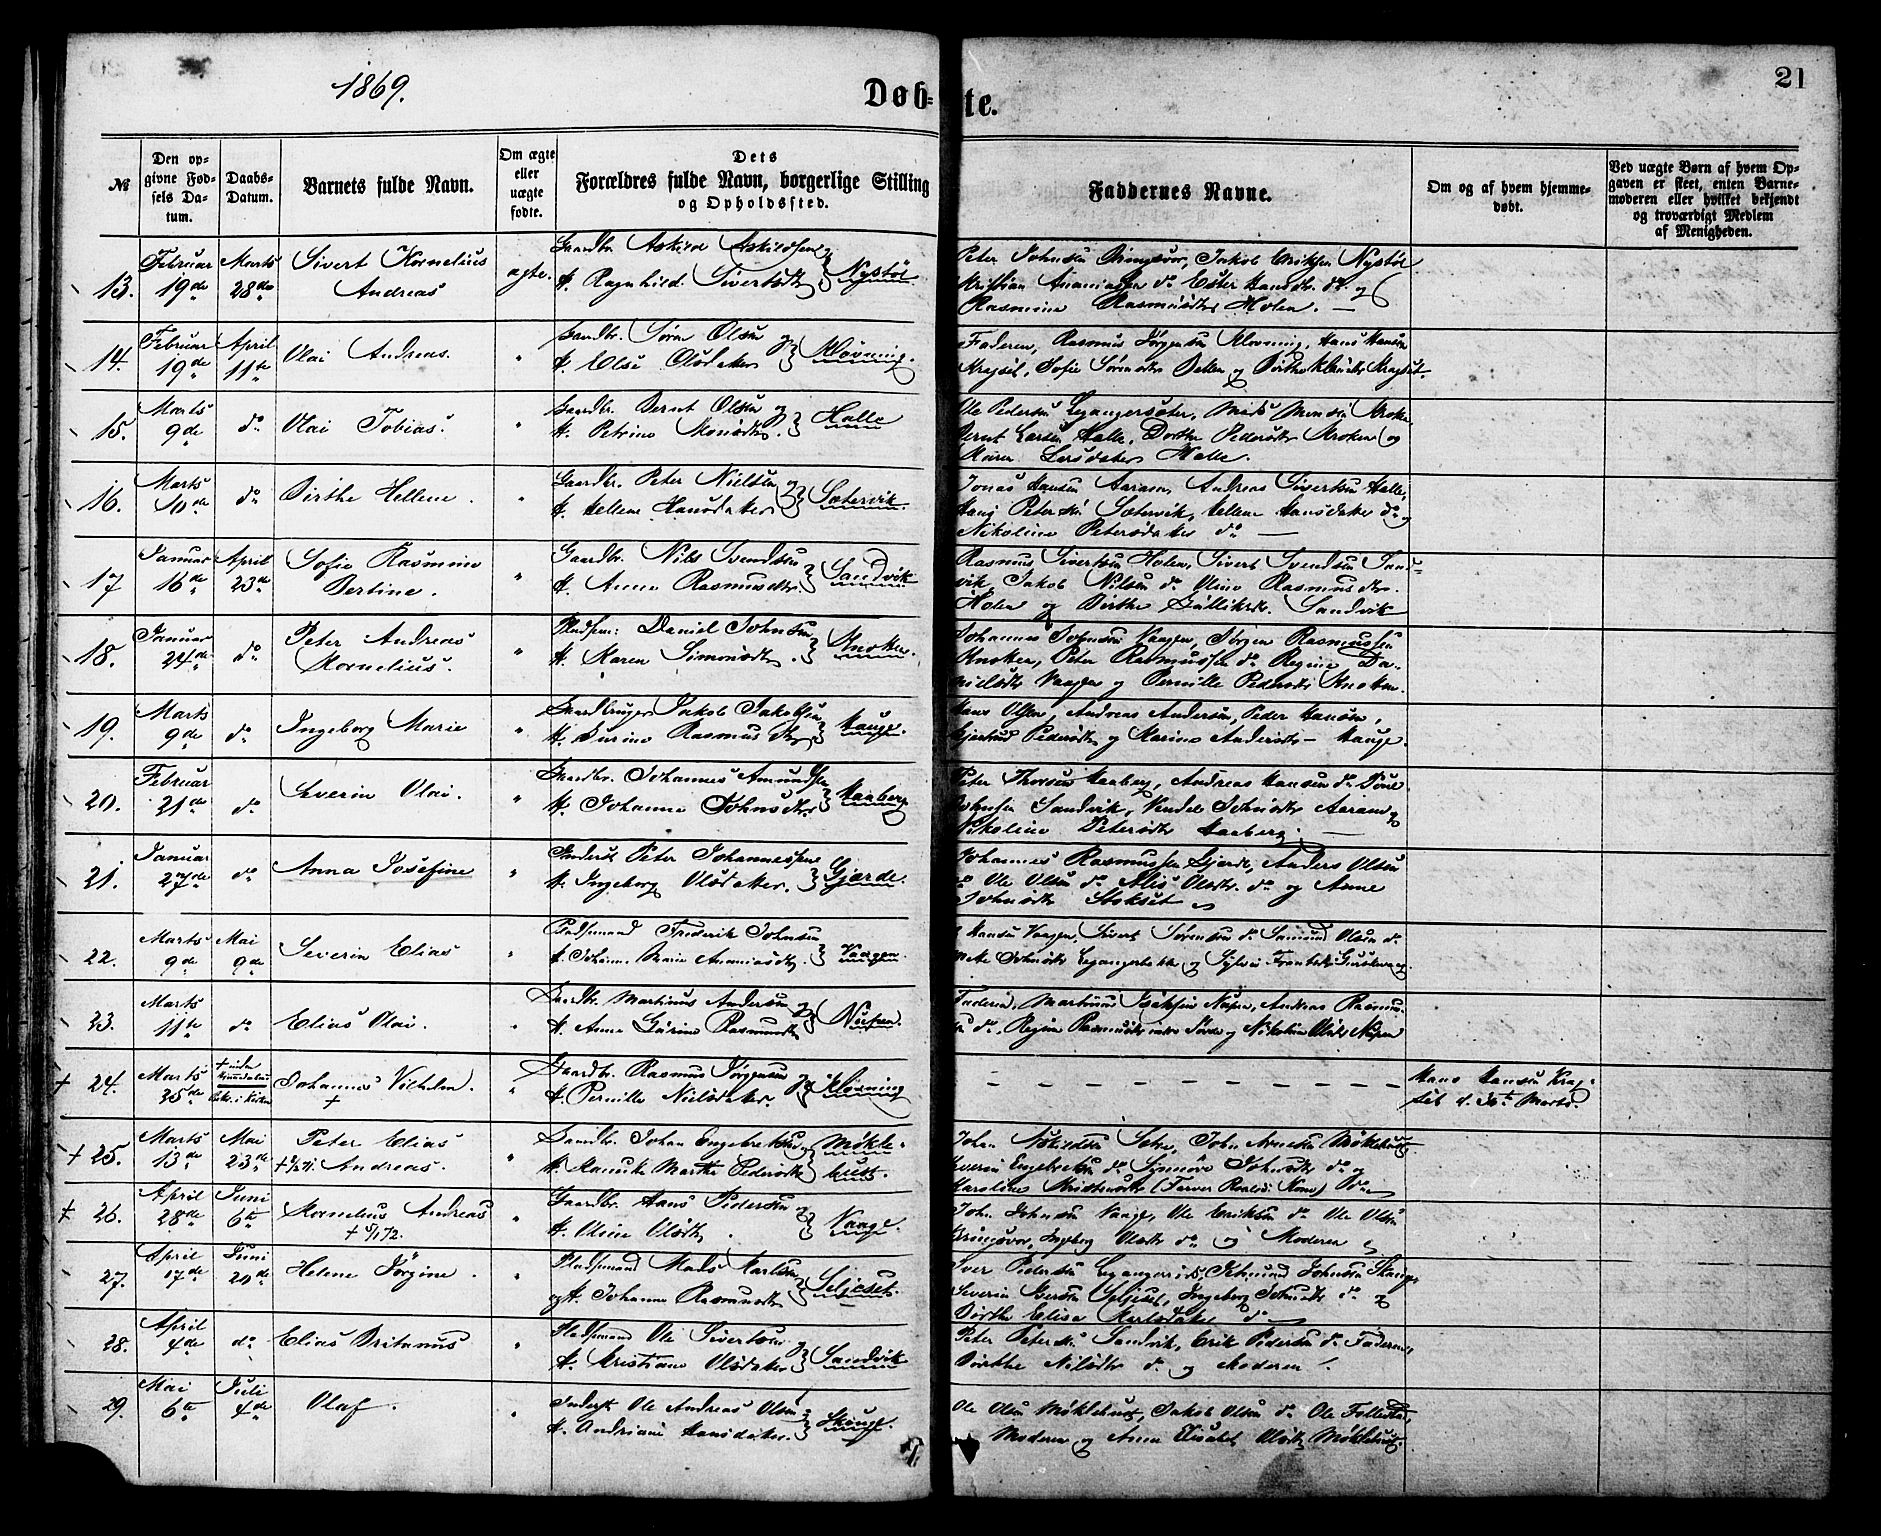 1869.
Døbte.
21
№
Den opgivne Fødsels Datum.
Daabs-Datum.
Barnets fulde Navn.
Om ægte eller uægte fødte.
Dets Forældres fulde Navn, borgerlige Stilling og Opholdssted.
Faddernes Navne.
Om og af hvem hjemmedøbt.
Ved uægte Børn af hvem Opgaven er skeet, enten Barnemoderen eller hvilket bekjendt og troværdigt Medlem af Menigheden.
13. Februar 19de Marts 28de Sivert Kornelius Andreas ægte. Gaardbr. Askild Askildsen og H. Ragnhild Sivertsdtr Nystøl
Peter Johnsen Jakob Eriksen Nystøl
Kristian Ananiassen do Ester Hansdtr. do og
Rasmine Rasmusdtr Holen.
14. Februar 19de April 11te Olai Andreas. " Gaardbr. Søren Olsen og H. Else Olsdatter Kløvning.
Faderen, Rasmus Jørgensen Kløvning, Hans Hansen
Kragset, Sofie Sørensdtr og Birthe Kragset
15. Marts 9de do Olai Tobias. " Gaardbr. Bernt Olsen og H. Petrine Monsdtr. Halle
Ole Pedersen Legangersæter, Mads Monsen Kroken
Bernt Larsen Halle, Dorthe Pedersdtr Kroken og
Maren Larsdatter Halle.
16. Marts 10de do Birthe Hellene. " Gaardbr. Peter Nielsen og H. Hellene Hansdatter Sætervik
Jonas Hansen Aaram, Andreas Sivertsen Halle,
Petersen Sætervik, Hellene Hansdatter do og
Nikoline Petersdatter do
17 Januar 16de April 23de Sofie Rasmine Bertine. " Gaardbr. Nils Svendsen H. Anne Rasmusdtr Sandvik
Rasmus Sivertsen Holen, Sivert Svendsen Sandvik
Jakob Nilsen do Oline Rasmusdtr
Holen og Birthe Sandvik
18. Januar 24de do Peter Andreas Kornelius. " Daniel Johnsen H. Karen Simonsdtr. Knoken
Johannes Johnsen Vaagen, Jørgen Rasmussen
Knoken, Peter Rasmussen do Regine Danielsdtr
Vaagen og Pernille Pedersdtr Knoken.
19. Marts 9de do Ingeborg Marie " Gaardbruger Jakob Jakobsen H. Rasmusdtr Hauge.
Hans Olsen, Andreas Andersen, Peder Hansen,
Gjertrud Pedersdtr og Marine Andersdtr Hauge.
20. Februar 21de do Severin Olai. " Gaardbr. Johannes Amundsen H. Johanne Johnsdtr. Haaberg
Peter Thorsen Haaberg, Andreas Hansen do
Johnsen Sandvik, Johnsdtr Aaram og
Nikoline Petersdtr Haaberg
21. Januar 27de do Anna Josefine " Inderst Peter Johannessen H. Ingeborg Olsdatter. Gjærde.
Johannes Rasmussen Gjerde, Anders Olsen
do Ole Olsen do Olsdtr. do og Anne
Johnsdtr Stokset
22. Marts 9de Mai 9de Severin Elias " Pladsmand Frederik Johnsen H. Johanne Marie Ananiasdtr Vaagen.
Hansen Vaagen, Sivert Sørensen do Samund Olsen do
Johnsdtr og Sylvei
23. Marts 11te do Elias Olai. " Gaardbr. Martinus Andersen og H. Anne Gurine Rasmusdtr Nupen
Faderen, Martinus Nupen, Andreas
do Regine Rasmusdtr og Nikoline Olsdtr Nupen
+ 24. Marts 25de Johannes Vilhelm. + " Gaardbr. Rasmus Jørgensen og H. Pernille Nielsdatter. Kløvning
Hans Hansen Kragset d. Marts.
+ 25. Marts 13de Mai 23de Peter Elias Andreas. " Gaardbr. Johan Engebretsen og H. Marthe Pedersdtr Møklebust.
John Sætre, John Arnesen Møklebust
Severin Engebretsen do Synnøve Johnsdtr do og
Karoline
+ 26. April 28de Juni 6te Kornelius Andreas + 5/1 72. " Gaardbr. Hans Pedersen og H. Oline Olsdtr. Vaage.
John Johnsen Vaage, Ole Eriksen do Ole Olsen
Ingeborg Olsdtr do og Moderen
27. April 17de Juni 20de Helene Jørgine. " Pladsmand Mads Karlsen og H. Johanne Rasmusdtr Seljeset.
Iver Pedersen Johnsen Skauge
Severin Iversen Seljeset, Ingeborg Johnsdtr do og
Dorthe Elisa Karlsdatter do
28. April 4de do Elias Britanus " Pladsmand Ole Sivertsen og H. Kristiane Olsdatter Sandvik
Peter Petersen Sandvik, Erik Pedersen do Faderen,
Dorthe Nilsdtr do og Moderen.
29. Mai 6te Juli 4de Olaf. " Inderst Ole Andreas Olsen H. Andriane Hansdatter. Skauge
Ole Olsen Møklebust, Jakob Olsen do Ole
Moderen og Anne Elisabet Olsdtr Møklebust